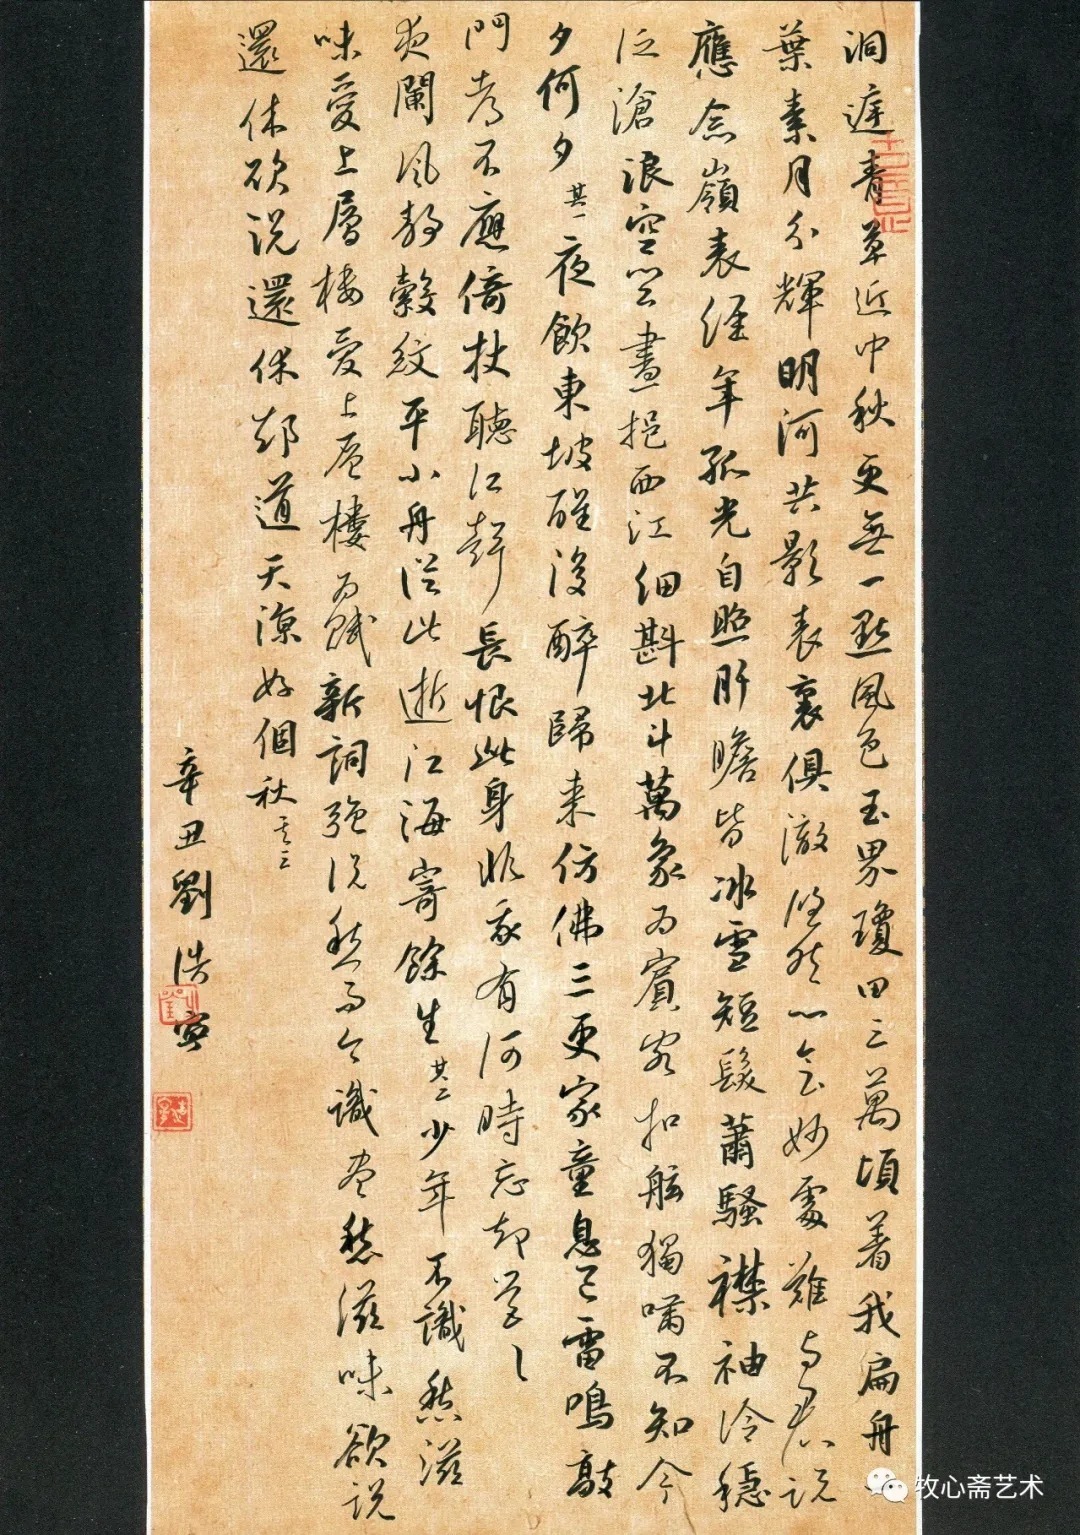 洞庭青草近中秋更無一點風色玉界瓊田三萬頃著我扁舟一
葉素月分輝明河共影表裏俱澈悠然心會妙處難與君說
應念嶺表經年孤光自照肝膽皆冰雪短髮蕭騷襟袖冷穩
泛滄浪空闊盡挹西江細斟北斗萬象為賓客扣舷獨嘯不知今
夕何夕 其一 夜飲東坡醒復醉歸來仿佛三更家童鼻息已雷鳴敲
門都不應倚杖聽江聲長恨此身非我有何時忘卻營〻
夜闌風靜縠紋平小舟從此逝江海寄餘生 其二 少年不識愁滋
味愛上層樓愛上層樓為賦新詞強說愁而今識盡愁滋味欲說
還休欲說還休卻道天涼好個秋 其三
辛丑劉浩寅
牧心斋艺术